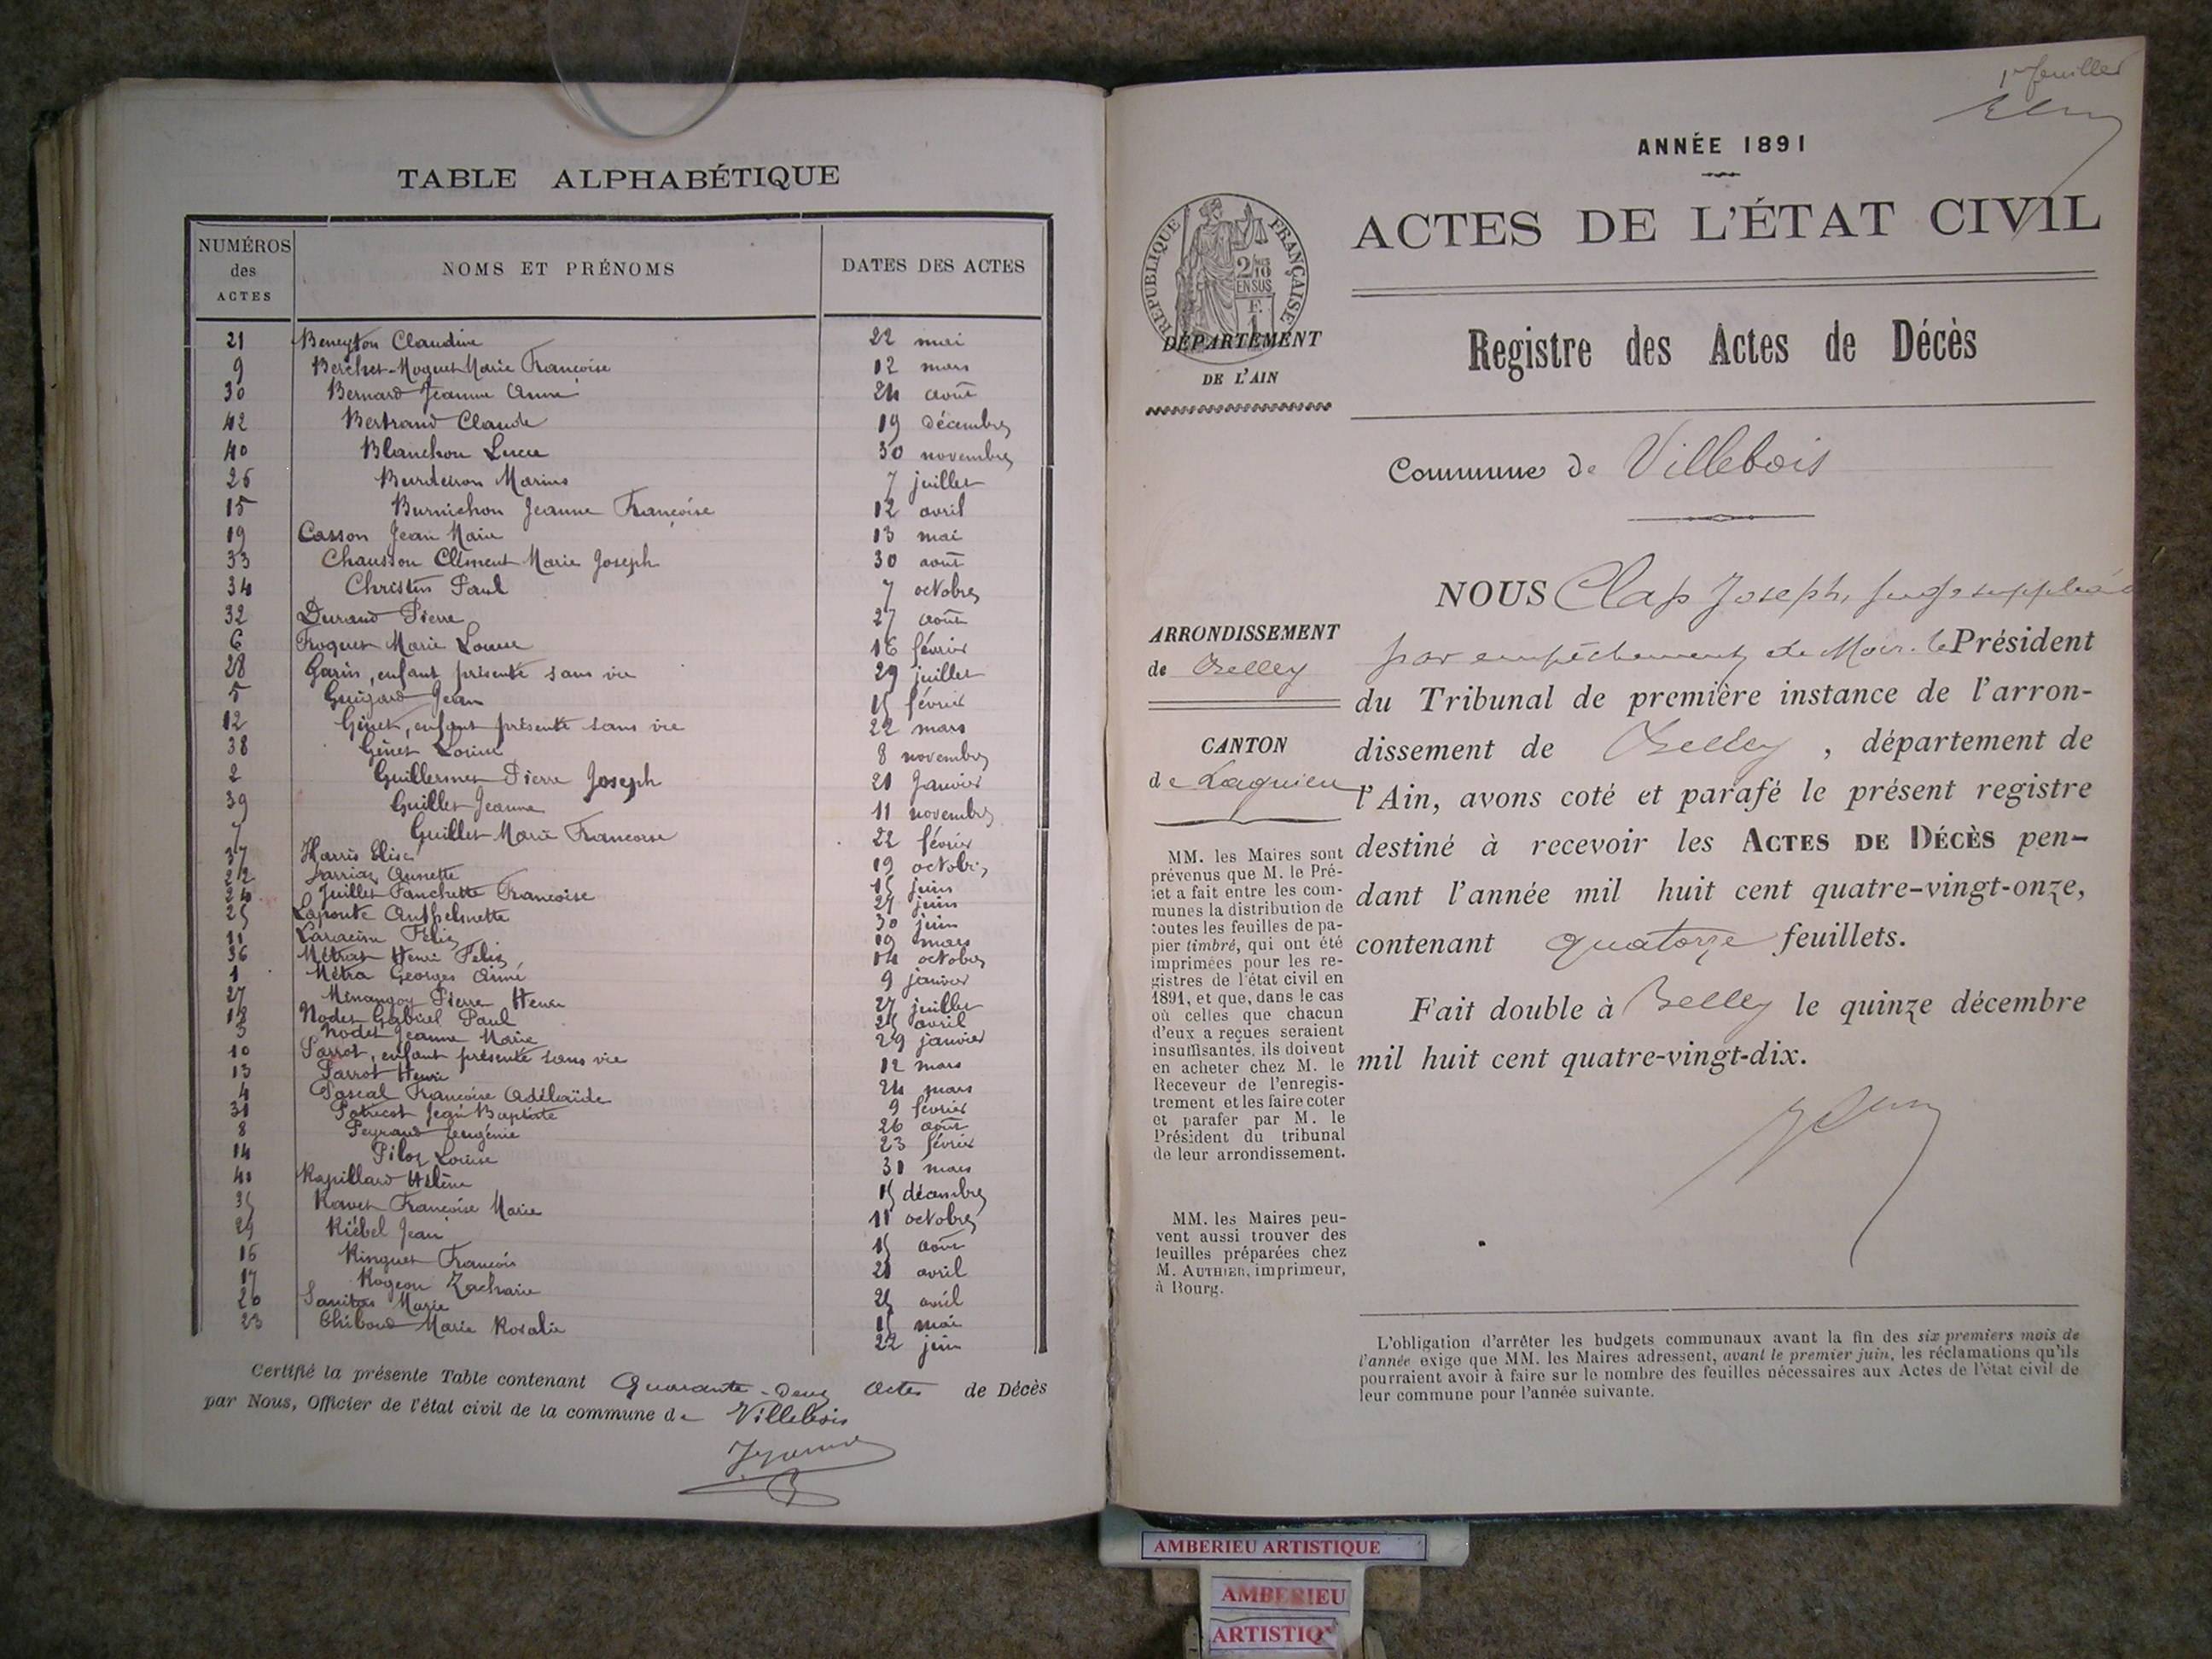 TABLE ALPHABÉTIQUE
NUMÉROS des ACTES
NOMS ET PRÉNOMS
DATES DES ACTES
21 Beneyton Claudine 22 mai
9 Berchet-Moguet Marie Françoise 12 mars
30 Bernard Jeanne Anne 24 août
42 Bertrand Claude 19 décembre
40 Blanchon Lucie 30 novembre
26 Burdeiron Marius 7 juillet
15 Burnichon Jeanne Françoise 12 avril
19 Casson Jean Marie 13 mai
33 Chausson Clément Marie Joseph 30 août
34 Christin Paul 7 octobre
32 Durand Pierre 27 août
6 Froquet Marie Louise 16 février
28 Garin, enfant présenté sans vie 29 juillet
5 Guigard Jean 15 février
12 Génet, enfant présenté sans vie 22 mars
38 Génet Louise 8 novembre
2 Guillermet Pierre Joseph 21 Janvier
39 Guillet Jeanne 11 novembre
7 Guillet Marie Françoise 22 février
37 Harris Elise 19 octobre
22 Jarriaz Annette 15 juin
24 Juillet Fanchette Françoise 27 juin
25 Laponte Anthelmette 30 juin
11 Larracine Félix 19 mars
36 Métrat Henri Félix 14 octobre
1 Métra Georges Aimé 9 janvier
27 Minangoy Pierre Henri 27 juillet
18 Nodet Gabriel Paul 25 avril
3 Nodet Jeanne Marie 29 janvier
10 Parrot, enfant présenté sans vie 12 mars
13 Parrot Henri 24 mars
4 Pascal Françoise Adélaïde 9 février
31 Patricot Jean Baptiste 26 août
8 Peyraud Eugénie 23 février
14 Piloz Louise 31 mars
41 Rapillard Hélène 15 décembre
35 Ravet Françoise Marie 11 octobre
29 Riébel Jean 15 août
16 Ringuet François 21 avril
17 Rogeon Zacharie 25 avril
20 Sanitas Marie 15 mai
23 Thiboud Marie Rosalie 22 juin
Certifié la présente Table contenant Quarante-deux Actes de Décès
par Nous, Officier de l'état civil de la commune de Villebois
1er feuillet
ANNÉE 1891
ACTES DE L'ÉTAT CIVIL
RÉPUBLIQUE FRANÇAISE
2/10 EN SUS
F. 1
DÉPARTEMENT
DE L'AIN
Registre des Actes de Décès
Commune de Villebois
ARRONDISSEMENT
de Belley
CANTON
de Lagnieu
MM. les Maires sont
prévenus que M. le Pré-
fet a fait entre les com-
munes la distribution de
toutes les feuilles de pa-
pier timbré, qui ont été
imprimées pour les re-
gistres de l'état civil en
1891, et que, dans le cas
où celles que chacun
d'eux a reçues seraient
insuffisantes, ils doivent
en acheter chez M. le
Receveur de l'enregis-
trement et les faire coter
et parafer par M. le
Président du tribunal
de leur arrondissement.
MM. les Maires peu-
vent aussi trouver des
feuilles préparées chez
M. AUTHIER, imprimeur,
à Bourg.
NOUS Clap Joseph, Juge suppléant
par empêchement de Mr. le Président
du Tribunal de première instance de l'arron-
dissement de Belley, département de
l'Ain, avons coté et parafé le présent registre
destiné à recevoir les ACTES DE DÉCÈS pen-
dant l'année mil huit cent quatre-vingt-onze,
contenant quatorze feuillets.
Fait double à Belley le quinze décembre
mil huit cent quatre-vingt-dix.
L'obligation d'arrêter les budgets communaux avant la fin des six premiers mois de
l'année exige que MM. les Maires adressent, avant le premier juin, les réclamations qu'ils
pourraient avoir à faire sur le nombre des feuilles nécessaires aux Actes de l'état civil de
leur commune pour l'année suivante.
AMBERIEU ARTISTIQUE
AMBERIEU
ARTISTIQ